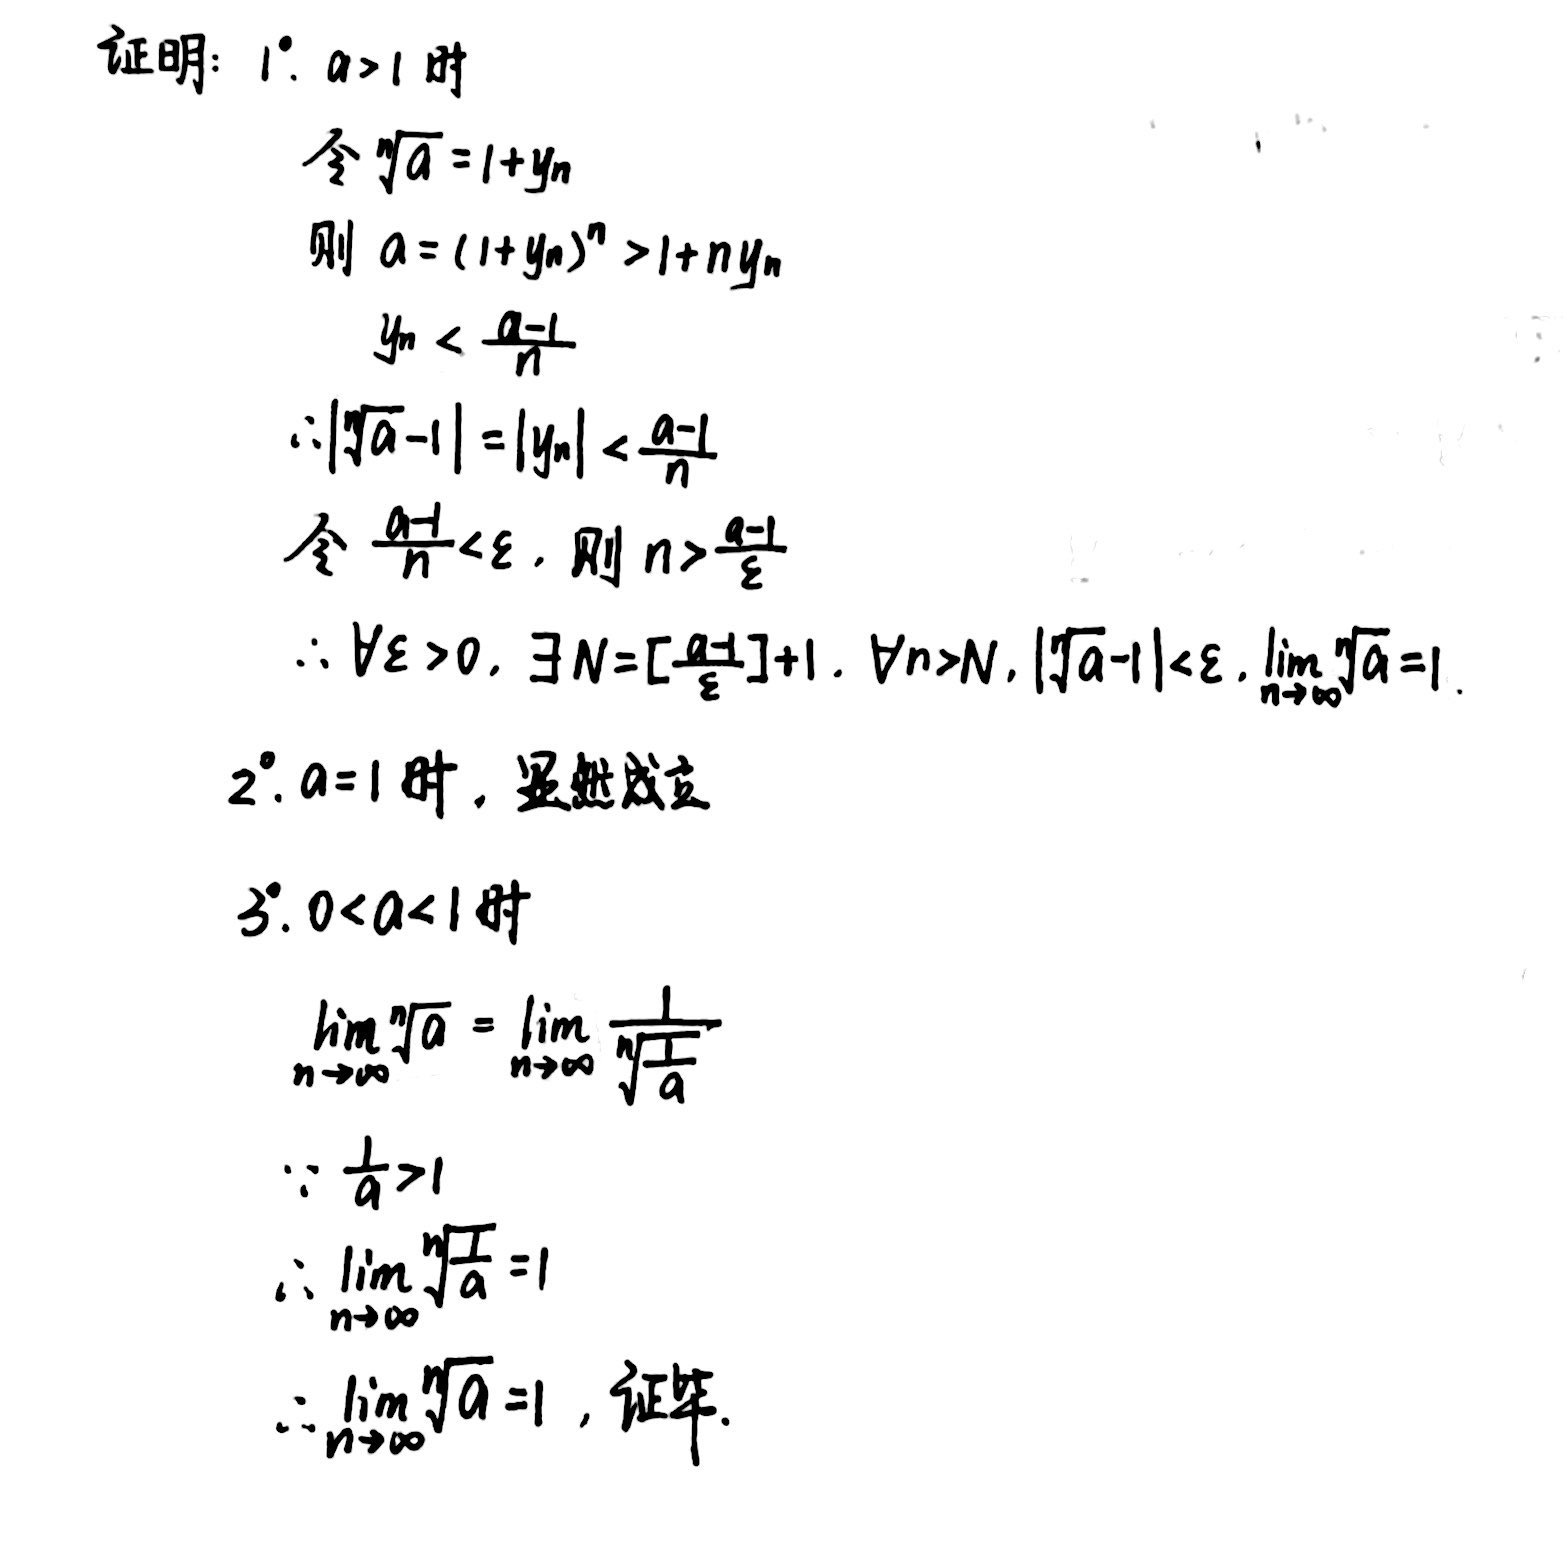 证明: 1°. a>1 时
令 ⁿ√a = 1+yₙ
则 a = (1+yₙ)ⁿ > 1+nyₙ
yₙ < (a-1)/n
∴ |ⁿ√a - 1| = |yₙ| < (a-1)/n
令 (a-1)/n < ε, 则 n > (a-1)/ε
∴ ∀ε>0, ∃N=[(a-1)/ε]+1, ∀n>N, |ⁿ√a - 1|<ε, lim_{n→∞} ⁿ√a = 1.
2°. a=1 时, 显然成立
3°. 0<a<1 时
lim_{n→∞} ⁿ√a = lim_{n→∞} 1/ⁿ√(1/a)
∵ 1/a > 1
∴ lim_{n→∞} ⁿ√(1/a) = 1
∴ lim_{n→∞} ⁿ√a = 1, 证毕.